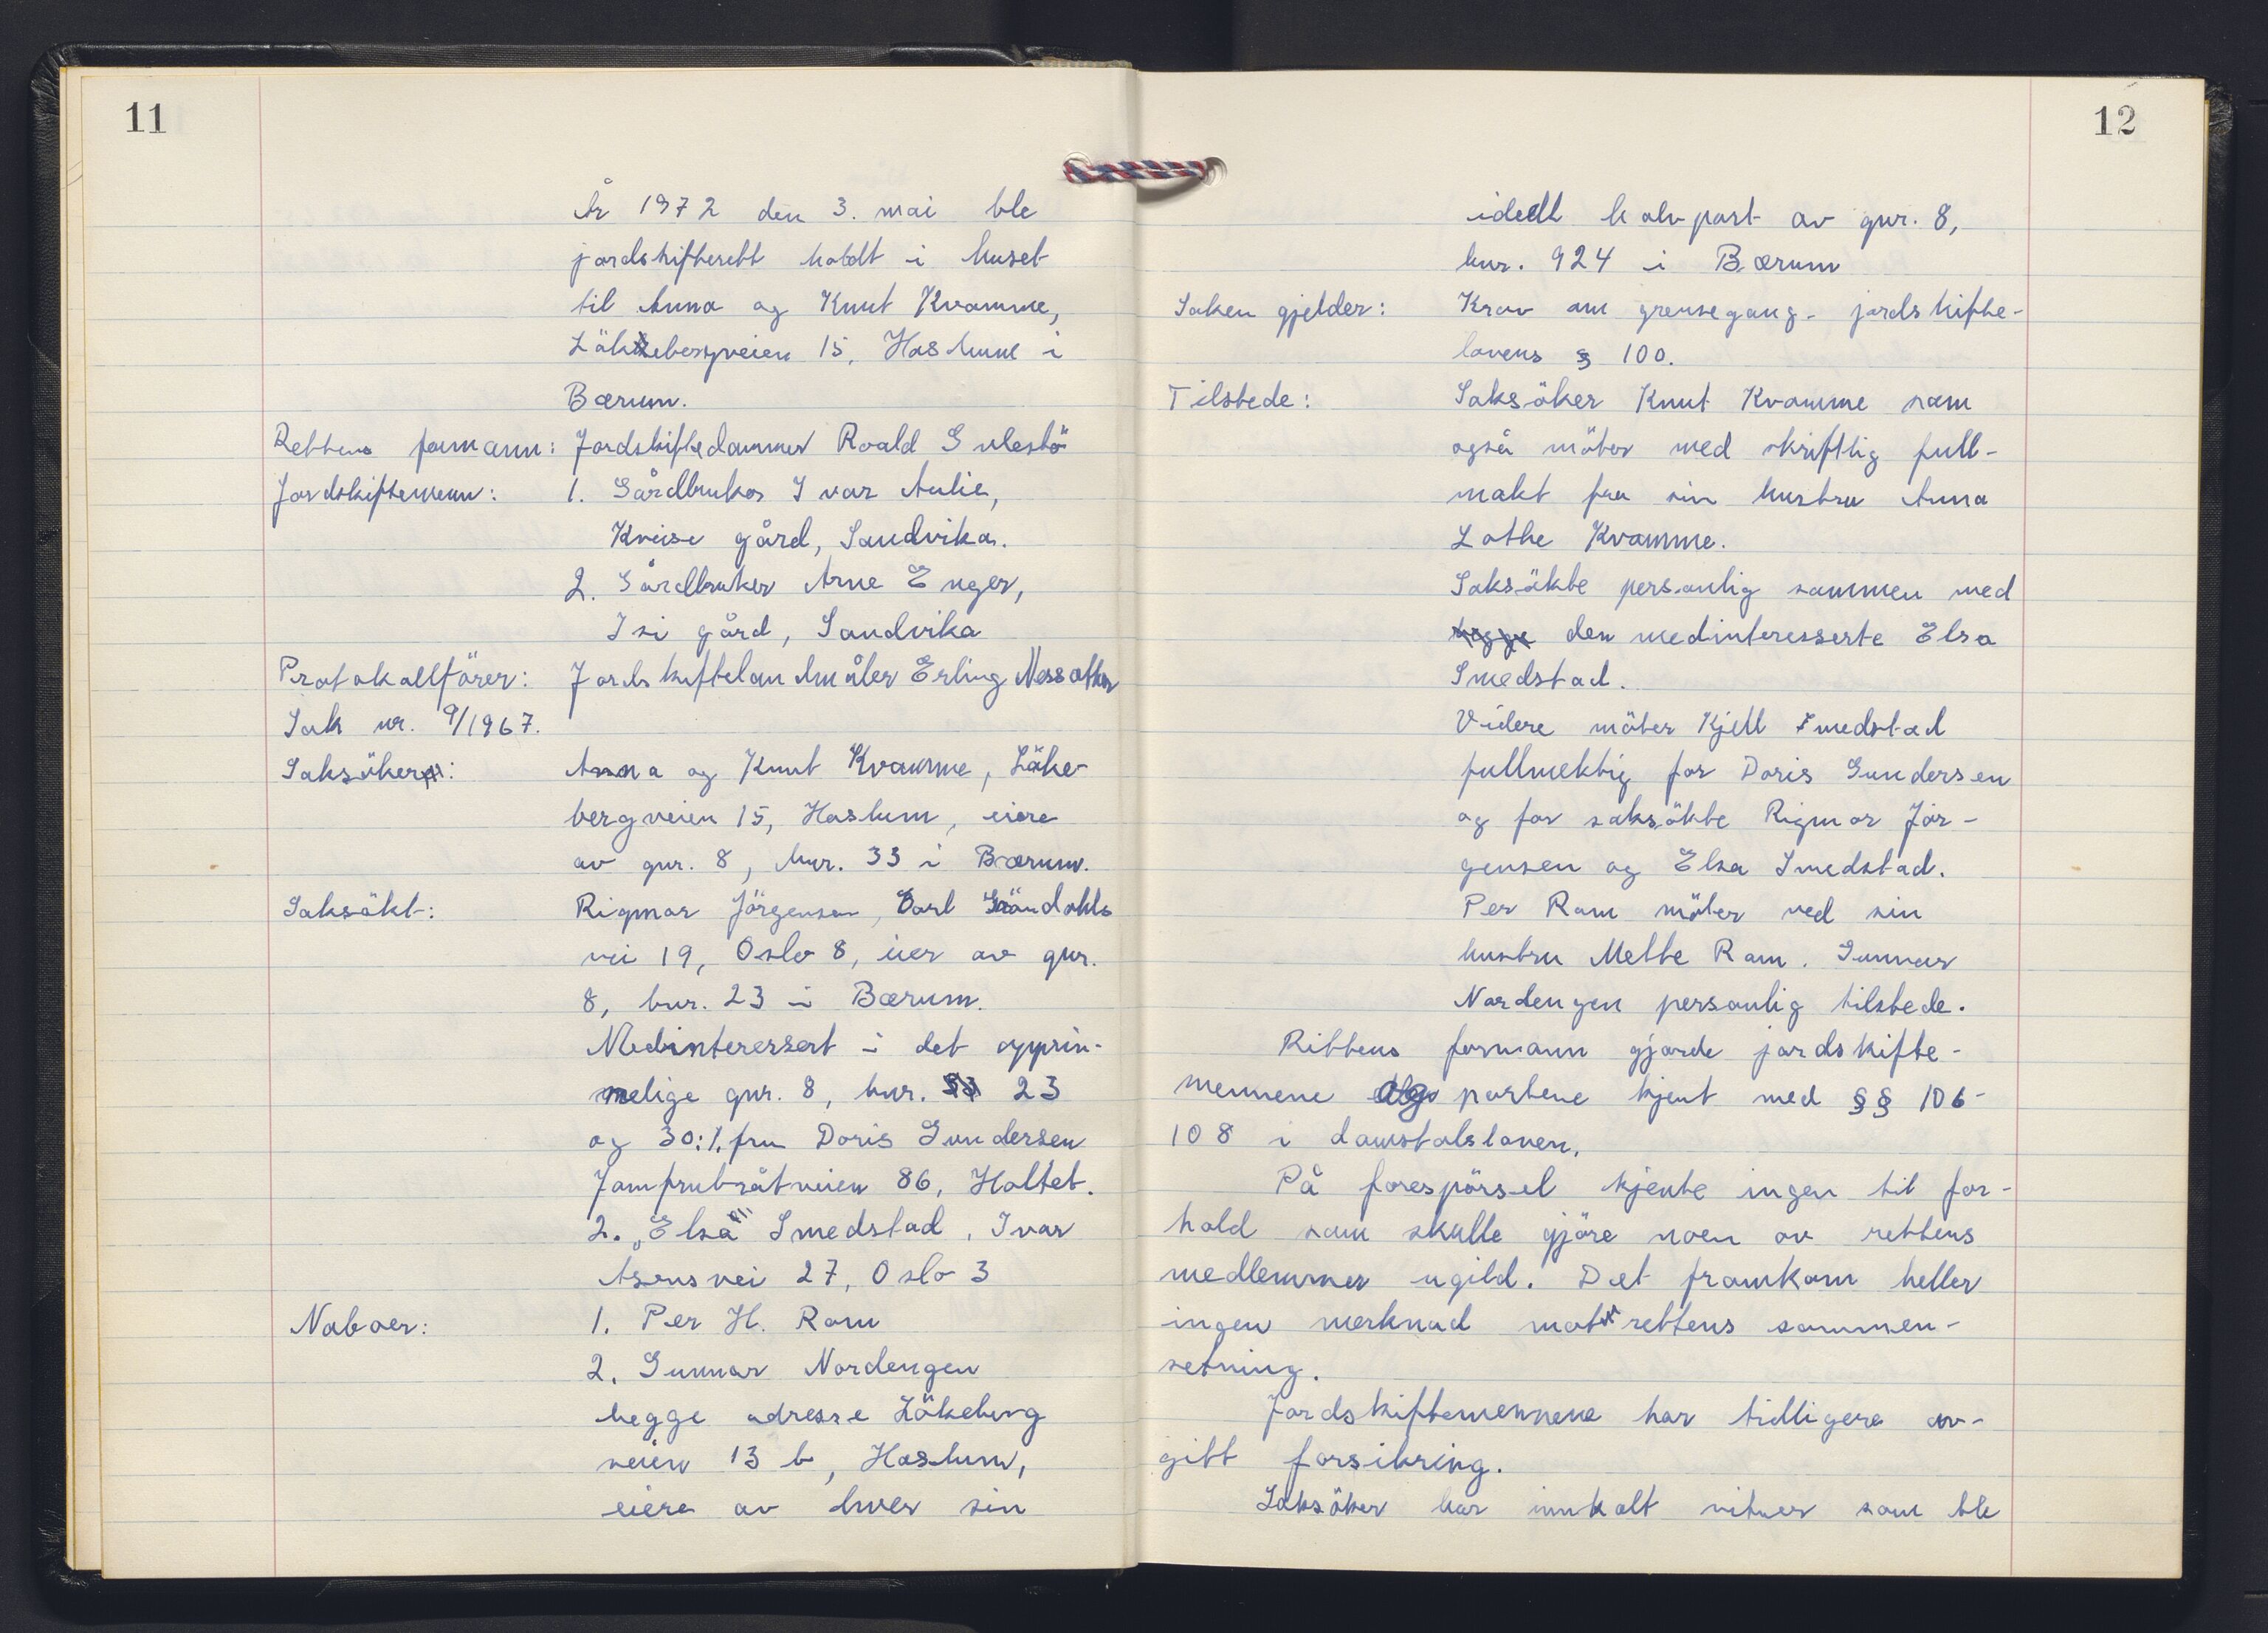 11
År 1972 den 3. mai ble
jordskifterett holdt i huset
til Anna og Knut Kvamme,
Lökebergveien 15, Haslum i
Bærum.
Rettens formann: Jordskiftedommer Roald Gulestö
Jordskiftemenn: 1. Gårdbruker Ivar Aulie,
Kveise gård, Sandvika.
2. Gårdbruker Arne Enger,
Isi gård, Sandvika
Protokollförer: Jordskiftelandmåler Erling
Sak nr. 9/1967.
Saksöker: Anna og Knut Kvamme, Löke-
bergveien 15, Haslum, eiere
av gnr. 8, bnr. 33 i Bærum.
Saksökt: Rigmor Jörgensen, Carl Gröndahls
vei 19, Oslo 8, eier av gnr.
8, bnr. 23 i Bærum.
Medinteressert i det opprin-
nelige gnr. 8, bnr. 23
og 30: 1. fru Doris Gundersen
Jomfrubråtveien 86, Holtet.
2. "Elsa" Smedstad, Ivar
Asens vei 27, Oslo 3
Naboer: 1. Per H. Ram
2. Gunnar Nordengen
begge adresse Lökeberg
veien 13 b, Haslum,
eiere av hver sin
12
ideell halvpart av gnr. 8,
bnr. 924 i Bærum
Saken gjelder: Krav om grensegang - jordskifte-
lovens § 100.
Tilstede: Saksöker Knut Kvamme som
også möter med skriftlig full-
makt fra sin hustru Anna
Lothe Kvamme.
Saksökte personlig sammen med
begge den medinteresserte Elsa
Smedstad.
Videre möter Kjell Smedstad
fullmektig for Doris Gundersen
og for saksökte Rigmor Jör-
gensen og Elsa Smedstad.
Per Ram möter ved sin
hustru Mette Ram. Gunnar
Nordengen personlig tilstede.
Rettens formann gjorde jordskifte-
mennene og partene kjent med §§ 106-
108 i domstolsloven.
På forespörsel kjente ingen til for-
hold som skulle gjöre noen av rettens
medlemmer ugild. Det framkom heller
ingen merknad mot rettens sammen-
setning.
Jordskiftemennene har tidligere av-
gitt forsikring.
Saksöker har innkalt vitner som ble